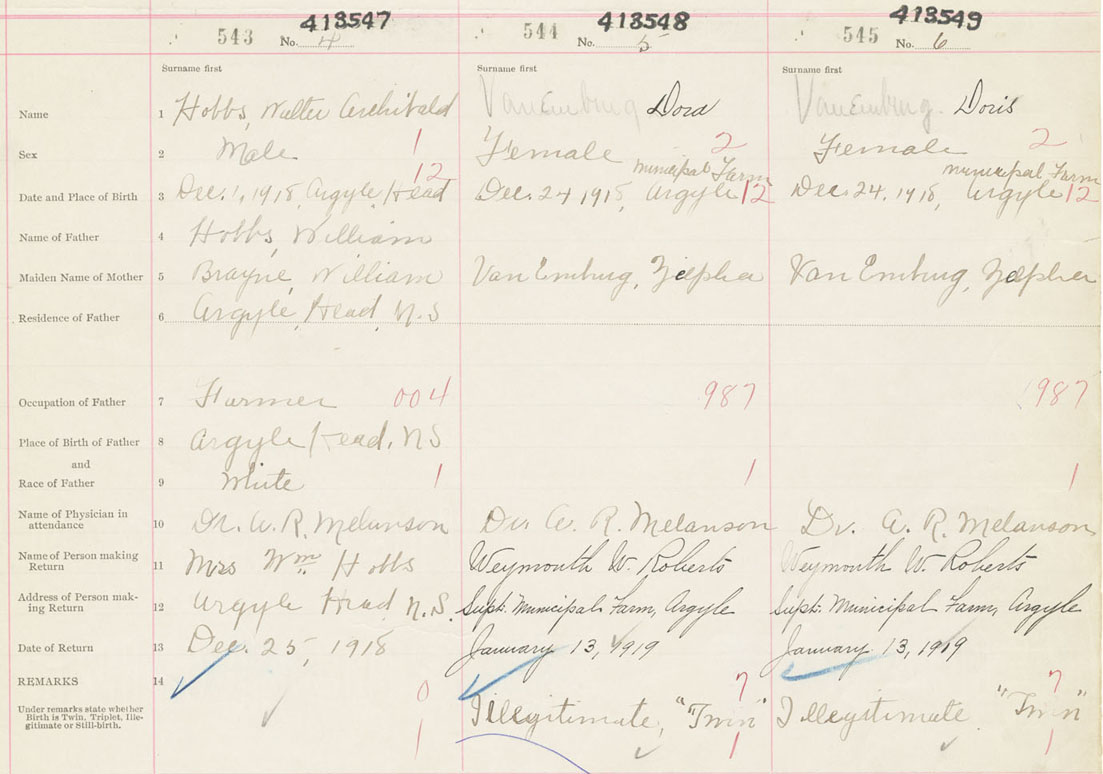 413547 413548 413549
543 No. 4 544 No. 5 545 No. 6
Surname first Surname first Surname first
Name 1 Hobbs, Walter Archibald Van Emburg Dora Van Emburg. Doris
Sex 2 Male 1 Female 2 Female 2
12 Municipal Farm Municipal Farm
Date and Place of Birth 3 Dec. 1, 1918, Argyle Head Dec. 24 1918, Argyle 12 Dec. 24, 1918, Argyle 12
Name of Father 4 Hobbs, William
Maiden Name of Mother 5 Brayne, William Van Emburg, Van Emburg,
Residence of Father 6 Argyle Head, N.S
Occupation of Father 7 Farmer 004 987 987
Place of Birth of Father 8 Argyle Head, NS
and
Race of Father 9 White 1 1 1
Name of Physician in
attendance 10 Dr. A. R. Melanson Dr. A. R. Melanson Dr. A. R. Melanson
Name of Person making
Return 11 Mrs Wm. Hobbs Weymouth W. Roberts Weymouth W. Roberts
Address of Person mak-
ing Return 12 Argyle Head N.S. Supt. Municipal Farm, Argyle Supt. Municipal Farm, Argyle
Date of Return 13 Dec. 25, 1918 January 13, 1919 January 13, 1919
REMARKS 14 0 7 7
Under remarks state whether
Birth is Twin, Triplet, Ille-
gitimate or Still-birth. Illegitimate, "Twin" Illegitimate "Twin"
1 1 1